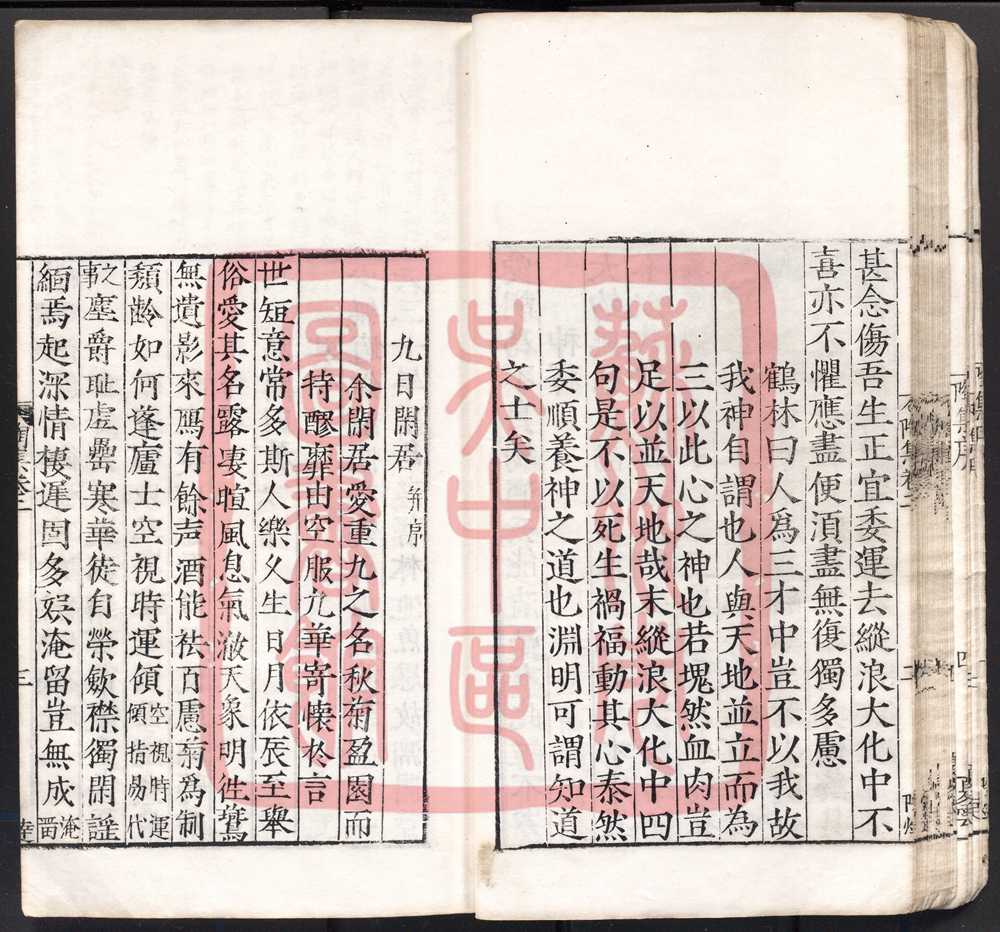 甚念傷吾生正宜委運去縱浪大化中不
喜亦不懼應盡便湏盡無復獨多慮
鶴林曰人爲三才中豈不以我故
我神自謂也人與天地並立而為
三以此心之神也若塊然血肉豈
足以並天地哉末縱浪大化中四
句是不以死生禍福動其心泰然
委順養神之道也淵明可謂知道
之士矣
九日閑居 并序
余閑居愛重九之名秋菊盈園而
持醪靡由空服九華寄懷於言
世短意常多斯人樂久生日月依辰至舉
俗愛其名露凄暄風息氣澈天象明徃鷰
無遺影來鴈有餘声酒能袪百慮菊爲制
頹齡如何蓬廬士空視時運傾空視時運傾指易代
之事塵爵耻虚罍寒華徒自榮歛襟獨閑謡
緬焉起深情棲遲固多娯淹留豈無成淹留
三
藝文印
吴中區
圖書館